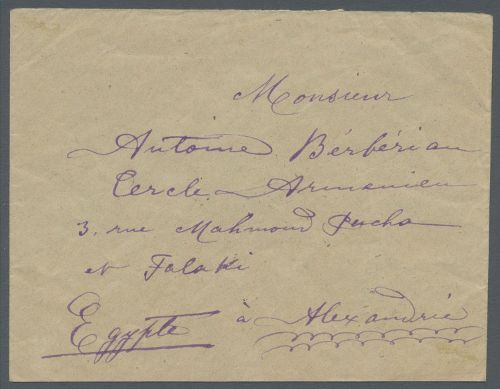 Monsieur
Antoine Bérbérian
Cercle Armenien
3. rue Mahmoud Pacha
et Falaki
Egypte à Alexandrie